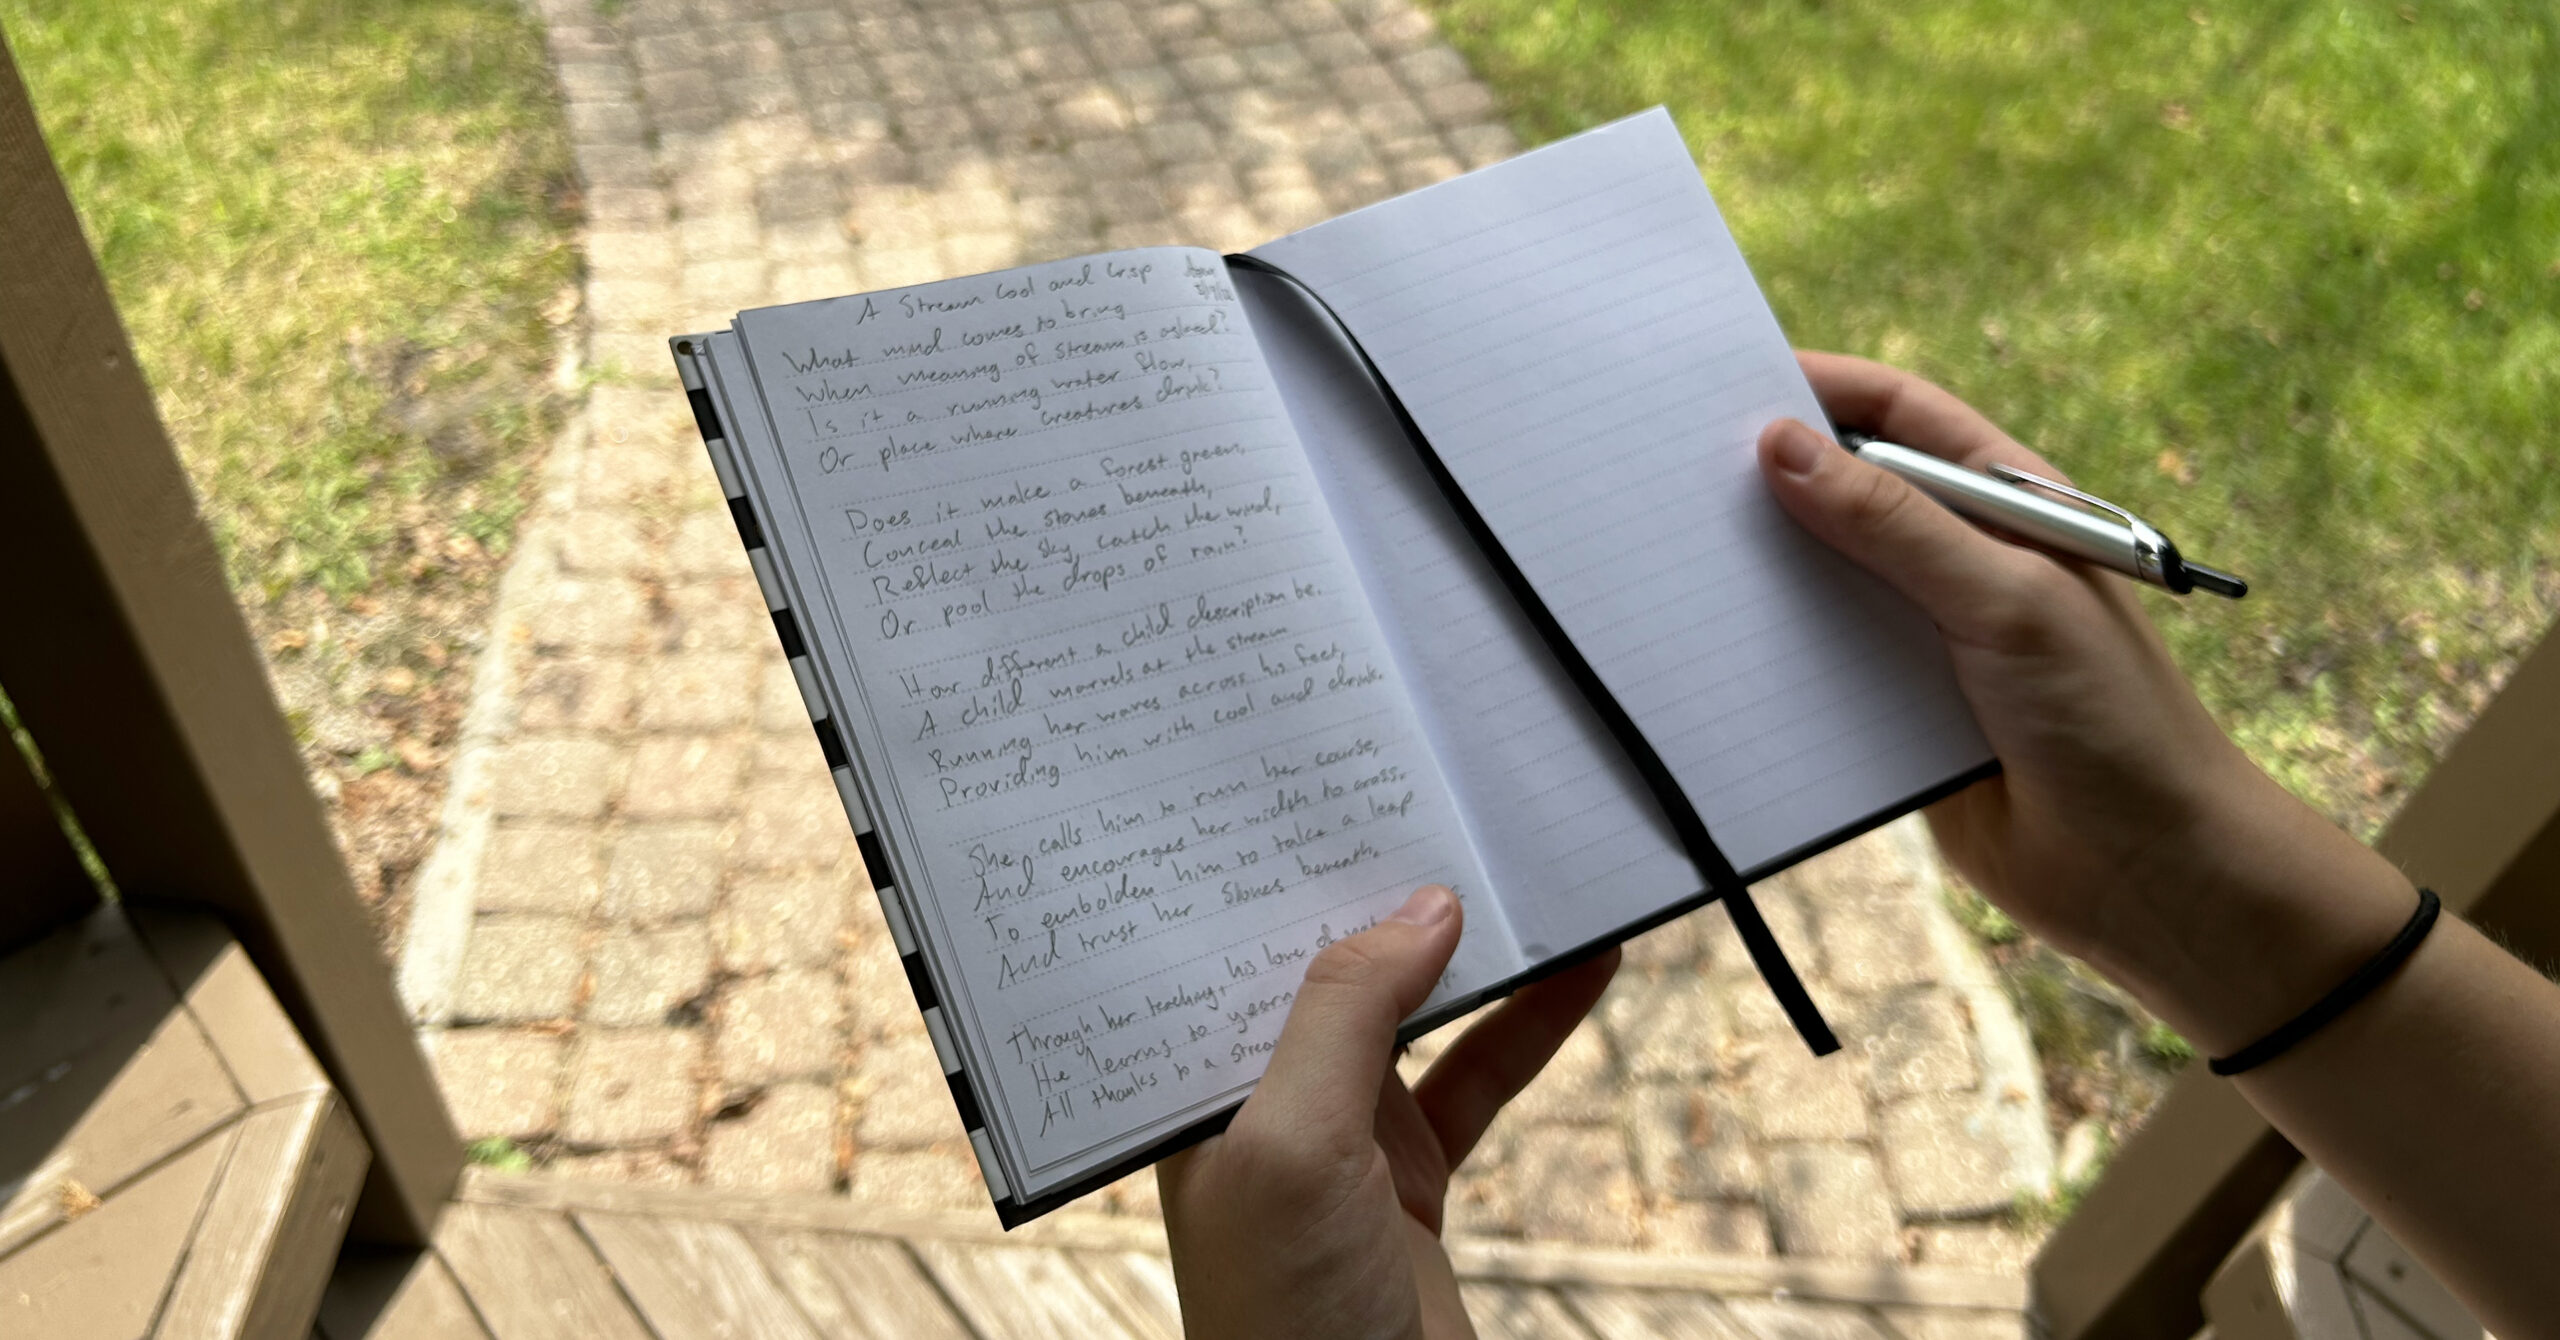 A Stream Cool and Crisp
What mind comes to bring
When meaning of stream is asked?
Is it a running water flow,
Or place where creatures drink?
Does it make a forest green,
Conceal the stones beneath,
Reflect the sky, catch the wind,
Or pool the drops of rain?
How different a child description be.
A child marvels at the stream
Running her waves across his feet,
Providing him with cool and drink.
She calls him to run her course,
And encourages her width to cross.
To embolden him to take a leap
And trust her stones beneath.
Through her teaching, his love of
He learns to yearn
All thanks to a